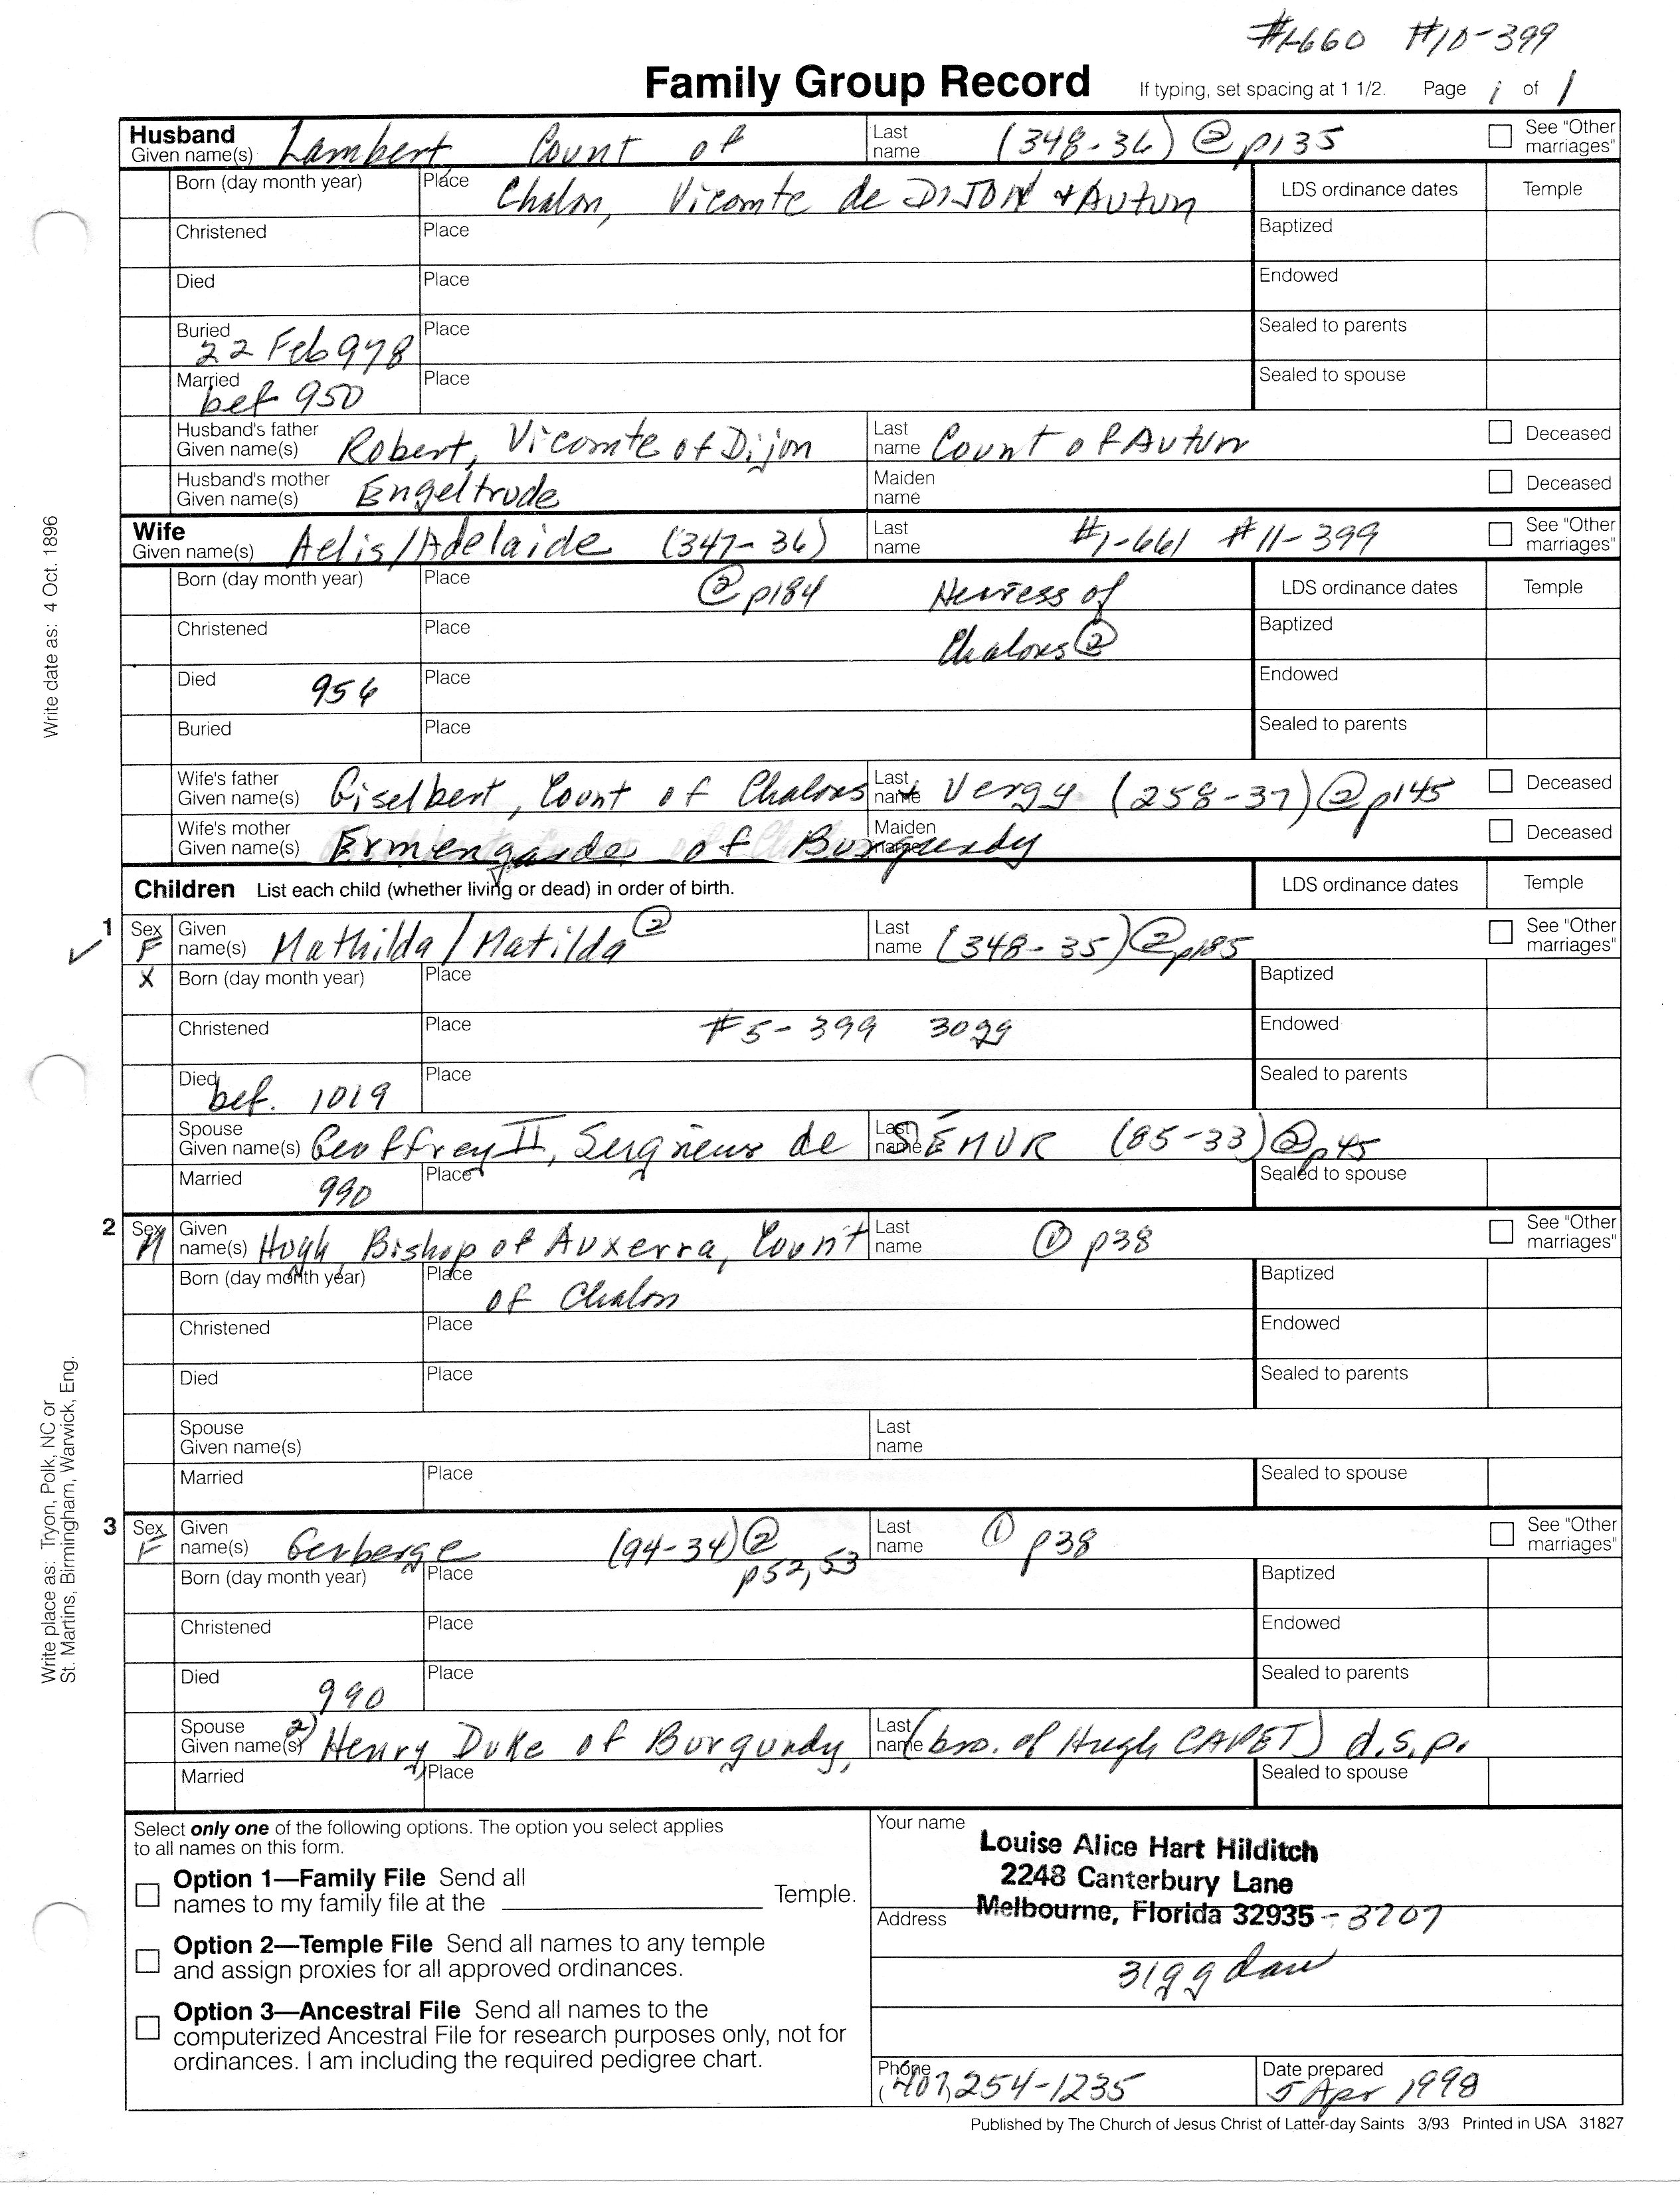 #1-660 #10-399
Family Group Record If typing, set spacing at 1 1/2. Page 1 of 1
Husband
Given name(s) Lambert Count of Last name (348-36) ② p135 See "Other marriages"
Born (day month year) Place Chalon, Vicomte de DIJON + Autun LDS ordinance dates Temple
Christened Place Baptized
Died Place Endowed
Buried 22 Feb 978 Place Sealed to parents
Married bef 950 Place Sealed to spouse
Husband's father Given name(s) Robert, Vicomte of Dijon Last name Count of Autun Deceased
Husband's mother Given name(s) Engeltrude Maiden name Deceased
Wife
Given name(s) Aelis/Adelaide (347-36) Last name #1-661 #11-399 See "Other marriages"
Born (day month year) Place ② p184 Heiress of LDS ordinance dates Temple
Christened Place Chalons ② Baptized
Died 956 Place Endowed
Buried Place Sealed to parents
Wife's father Given name(s) Giselbert, Count of Chalons Last name + Vergy (258-37) ② p145 Deceased
Wife's mother Given name(s) Ermengarde of Burgundy Maiden name Deceased
Children List each child (whether living or dead) in order of birth. LDS ordinance dates Temple
1 Sex F Given name(s) Mathilda/Matilda ② Last name (348-35) ② p185 See "Other marriages"
X Born (day month year) Place Baptized
Christened Place #5-399 30gg Endowed
Died bef. 1019 Place Sealed to parents
Spouse Given name(s) Geoffrey II, Seigneur de Last name SÉMUR (85-33) ② p45
Married 990 Place Sealed to spouse
2 Sex M Given name(s) Hugh Bishop of Auxerra, Count Last name ① p38 See "Other marriages"
Born (day month year) Place of Chalon Baptized
Christened Place Endowed
Died Place Sealed to parents
Spouse Given name(s) Last name
Married Place Sealed to spouse
3 Sex F Given name(s) Gerberge (94-34) ② Last name ① p38 See "Other marriages"
Born (day month year) Place p52, 53 Baptized
Christened Place Endowed
Died 990 Place Sealed to parents
Spouse Given name(s) 2) Henry Duke of Burgundy, Last name (bro. of Hugh CAPET) d.s.p.
Married Place Sealed to spouse
Select only one of the following options. The option you select applies
to all names on this form.
Option 1—Family File Send all
names to my family file at the Temple.
Option 2—Temple File Send all names to any temple
and assign proxies for all approved ordinances.
Option 3—Ancestral File Send all names to the
computerized Ancestral File for research purposes only, not for
ordinances. I am including the required pedigree chart.
Your name Louise Alice Hart Hilditch
2248 Canterbury Lane
Address Melbourne, Florida 32935-3707
31gg dau
Phone (407) 254-1235 Date prepared 5 Apr 1998
Published by The Church of Jesus Christ of Latter-day Saints 3/93 Printed in USA 31827
Write date as: 4 Oct. 1896
Write place as: Tryon, Polk, NC or
St. Martins, Birmingham, Warwick, Eng.